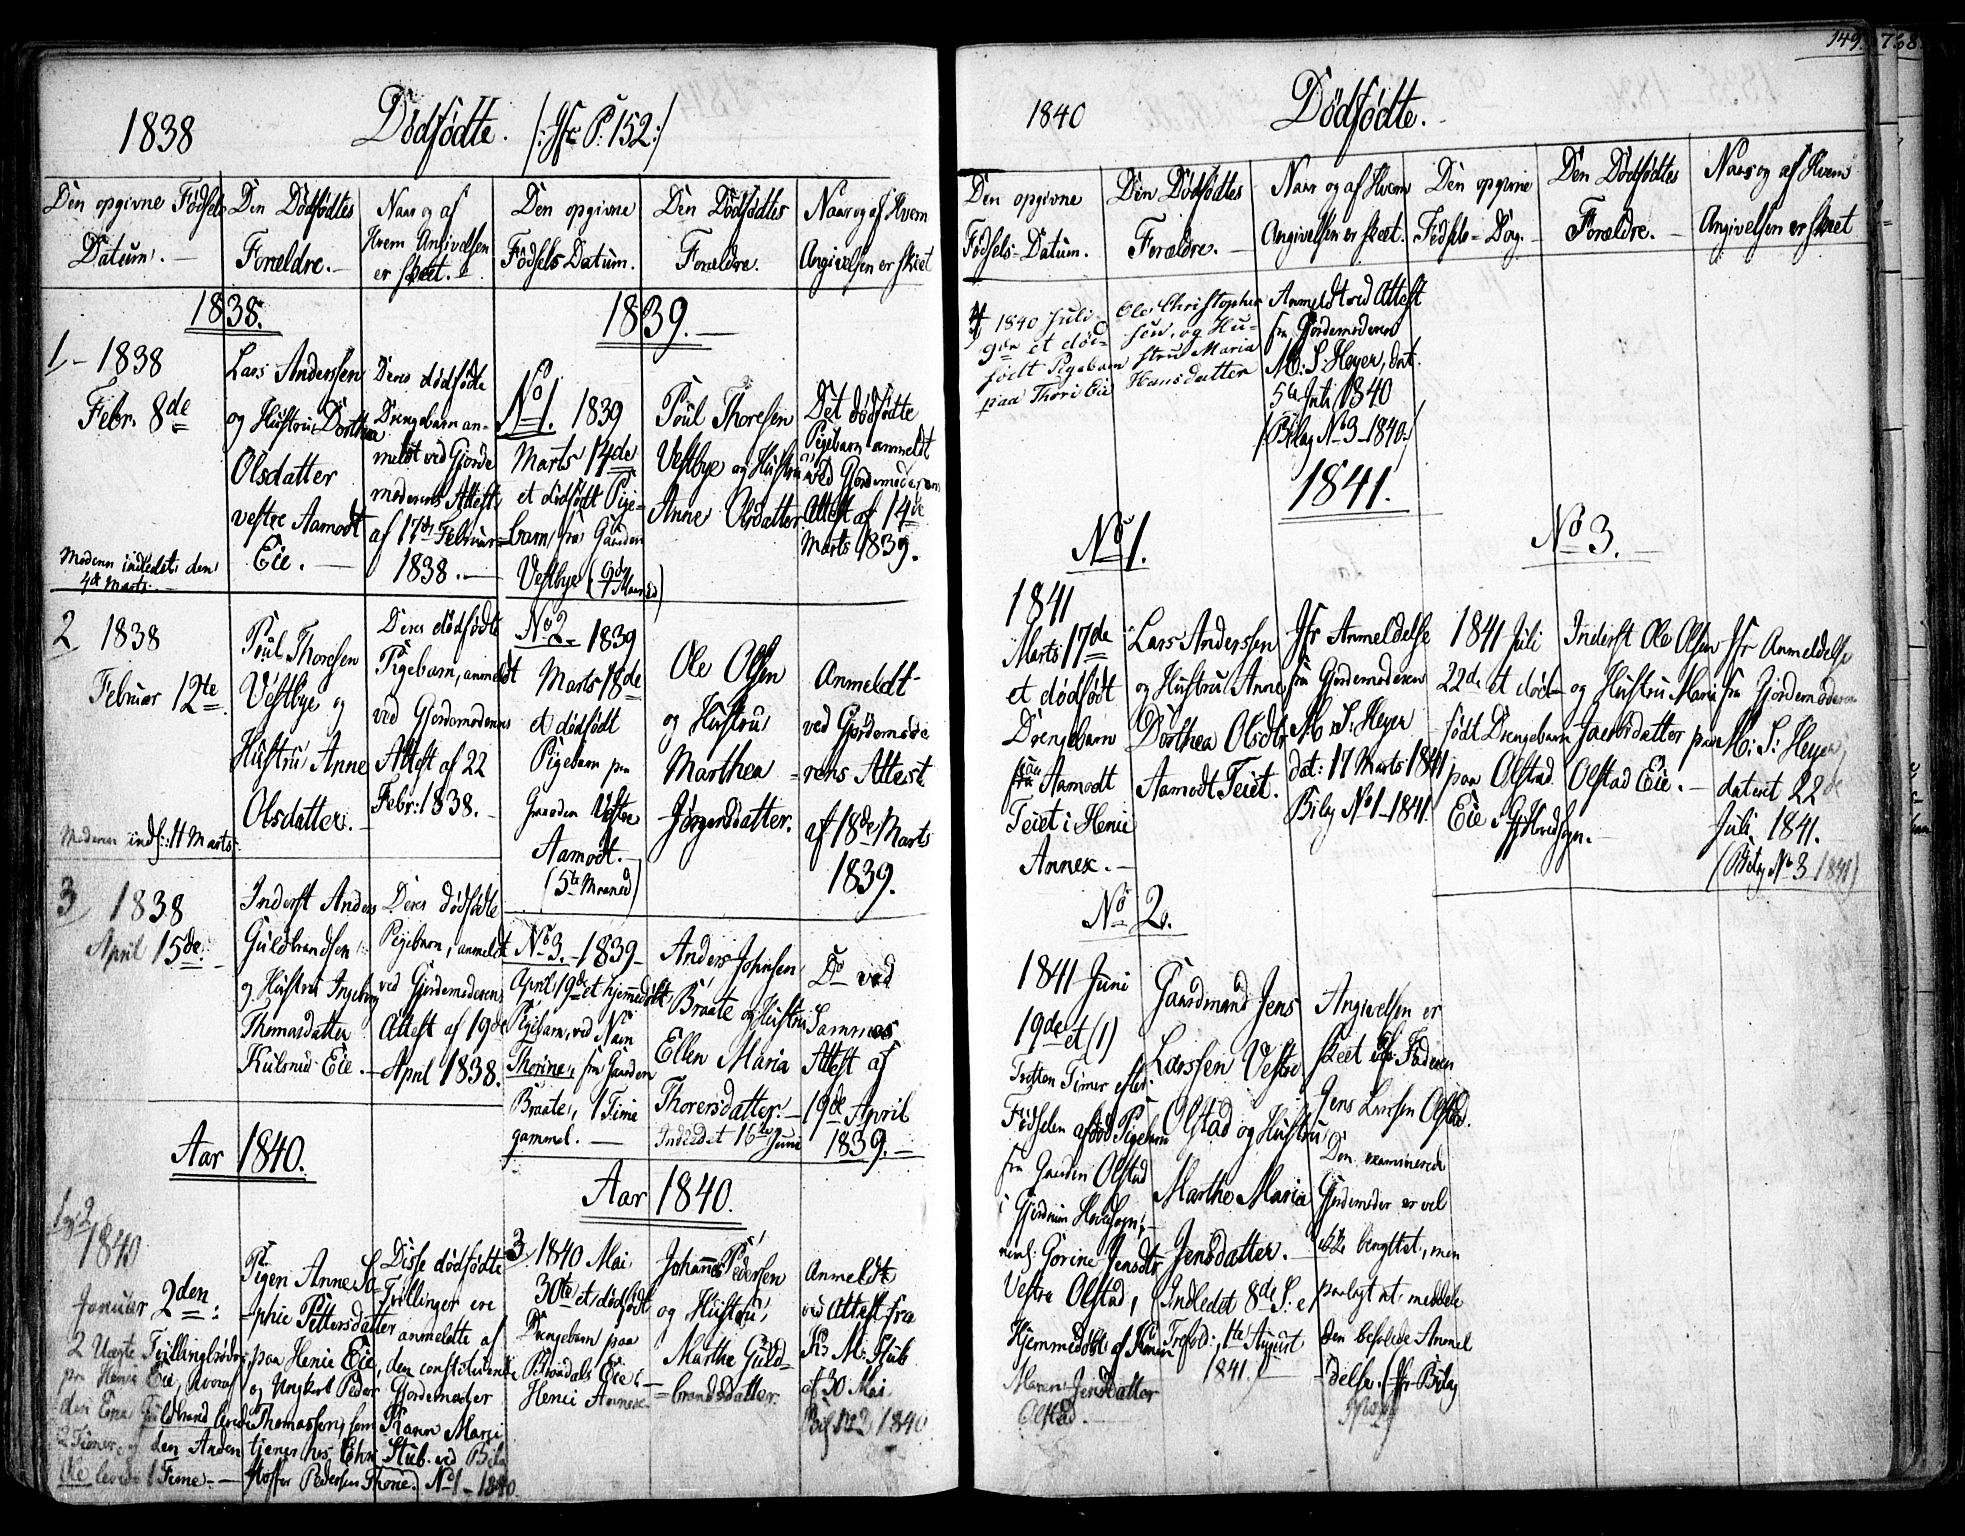 1838 Dödfödte. /: Jfr P. 152 :/
Den opgivne Födsels
Datum. -
Den Dödfödtes
Forældre. -
Naar og af
Hvem Angivelsen
er skeet. -
1838.
1, - 1838
Febr. 8de
Moderen indledet den
4de Marts. -
Lars Anderssen
og Hustru Dorthea
Olsdatter
vestre Aamodt
Eie. -
Deres dödfödte
Drengebarn an-
meldt ved Gjorde
moderens Attest
af 17de Februar
1838. -
2, 1838
Februar 12te
Moderen indl: 11 Marts
Poul Thoresen
Vestbye og
Hustru Anne
Olsdatter. -
Deres dödfödte
Pigebarn, anmeldt
ved Gjordemoderens
Attest af 22
Febr: 1838. -
3, 1838
April 15de. -
Inderst Anders
Guldbrandsen
og Hustru Ingeborg
Thomasdatter
Kulsrud Eie. -
Deres dödfödte
Pigebarn, anmeldt
ved Gjordemoderens
Attest af 19de
April 1838.
Aar 1840.
1 og 2
1840
Januar 2den:
2 Uægte Tvillingbrödre
paa Henie Eie, hvoraf
den Ene Guldbrand levede
2 Timer, og den Anden
ikke levede 1 Time. -
Pigen Anne So-
phie Pettersdatter
paa Henie Eie,
og Ungkarl Peder
Thomassen, som
tjener hos Chri
stoffer Pedersen Thorie.
Disse dödfödte
Tvillinger ere
anmeldte af
den constituerede
Gjordemoder
Karen Marie
Stub. ved Bilag
No 1 - 1840.
Den opgivne
Födsels Datum.
Den Dödfödtes
Forældre.
Naar og af Hvem
Angivelsen er skeet
1839. -
No 1. 1839
Marts 14de
et dödfödt Pige-
barn, fra Gaarden
Vestbye
Poul Thoresen
Vestbye og Hustru
Anne Olsdatter
Det dödfödte
Pigebarn anmeldt
ved Gjordemoderens
Attest af 14de
Marts 1839.
No 2. 1839
Marts 18de
et dödfödt
Pigebarn paa
Gaarden Vestre
Aamodt. -
(5te Maaned)
Ole Olsen
og Hustru
Marthea
Jörgensdatter.
Anmeldt
ved Gjordemode
rens Attest
af 18de Marts
1839.
No 3. - 1839 -
April 19de et hjemmedöbt
Pigebarn, ved Navn
Thorine, fra Gaarden
Braate, 1 Time
gammel. -
Anders Johnsen
Braate og Hustru
Ellen Maria
Thorersdatter. -
Indledet 16de Juni
Do ved
Sammes
Attest af
19de April
1839. -
Aar 1840.
3, 1840 Mai
30te et dödfödt
Drengebarn paa
Brådals Eie i
Henie Annex.
Johannes Pedersen
og Hustru,
Marthe Guld-
brandsdatter.
Anmeldt
ved Attest fra
K. M. Stub
af 30 Mai
Bil. No 2 1840
149. 768
1840 Dödfödte. -
Den opgivne
Födsels-Datum.
Den Dödfödtes
Forældre. -
Naar og af Hvem
Angivelsen er skeet.
Den opgivne
Födsels-Dag. -
Den Dödfödtes
Forældre. -
Naar og af Hvem
Angivelsen er skeet
4, 1840 Juli
et död-
födt Pigebarn
paa Thori Eie
Ole Christopher
sen, og Hu-
stru Maria
Hansdatter
Anmeldt ved Attest
fra Gjordemoderen
M: S: Heyer, dat.
5te Juli 1840
(Bilag No 3 - 1840.)
1841.
No 1.
1841
Marts 17de
et dödfödt
Drengebarn
paa Aamodt
Teiet i Henie
Annex. -
Lars Anderssen
og Hustru Anne
Dorthea Olsdtr
Aamodt Teiet.
Jfr Anmeldelse
fra Gjordemoderen
M: S: Heyer
dat: 17 Marts 1841
Bilag No 1 - 1841.
No 3. -
1841 Juli
22de et död-
födt Drengebarn
paa Olstad
Eie i Hvedsogn. -
Inderst Ole Olsen
og Hustru Maria
Jacobsdatter paa
Olstad Eie. -
Jfr Anmeldelse
fra Gjordemoderen
M: S: Heyer
dateret 22de
Juli 1841.
(Bilag No 3 1841)
No 2.
1841 Juni
19de et (1)
Tretten Timer efter
Födselen afdöd Pigebarn
fra Gaarden Olstad
i Gjerdrum Hovedsogn, -
navnl: Gorine Jensdtr
Vestre Olstad,
Hjemmedöbt af Konen
Maren Jensdatter
Olstad. -
Gaardmand Jens
Larssen Vestre
Olstad og Hustru
Marthe Maria
Jensdatter. -
Indledet 8de S: e,
Trefold:, 1te August
1841.
Angivelsen er
skeet af Faderen
Jens Larsen Olstad.
Den examinerede
Gjordemoder er vel
ikke benyttet, men
paalagt at meddele
den befalede Anmel
delse. (Jfr Bilag